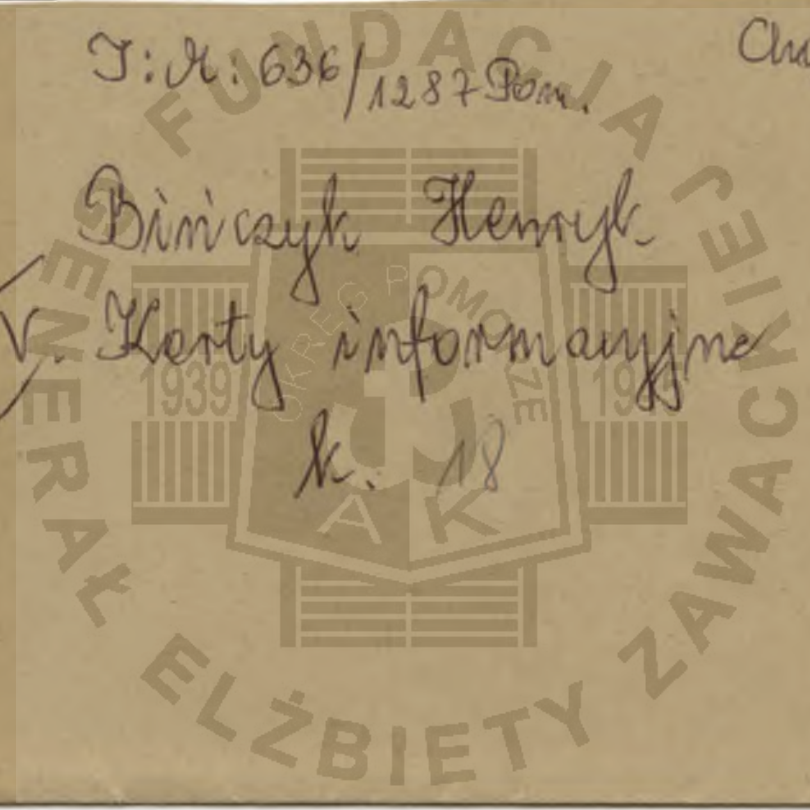 J: M: 636/1287 Pom.
Bińczyk Henryk
V. Karty informacyjne
k. 18
FUNDACJA GENERAŁ ELŻBIETY ZAWACKIEJ
OKRĘG POMORZE
1939
AK